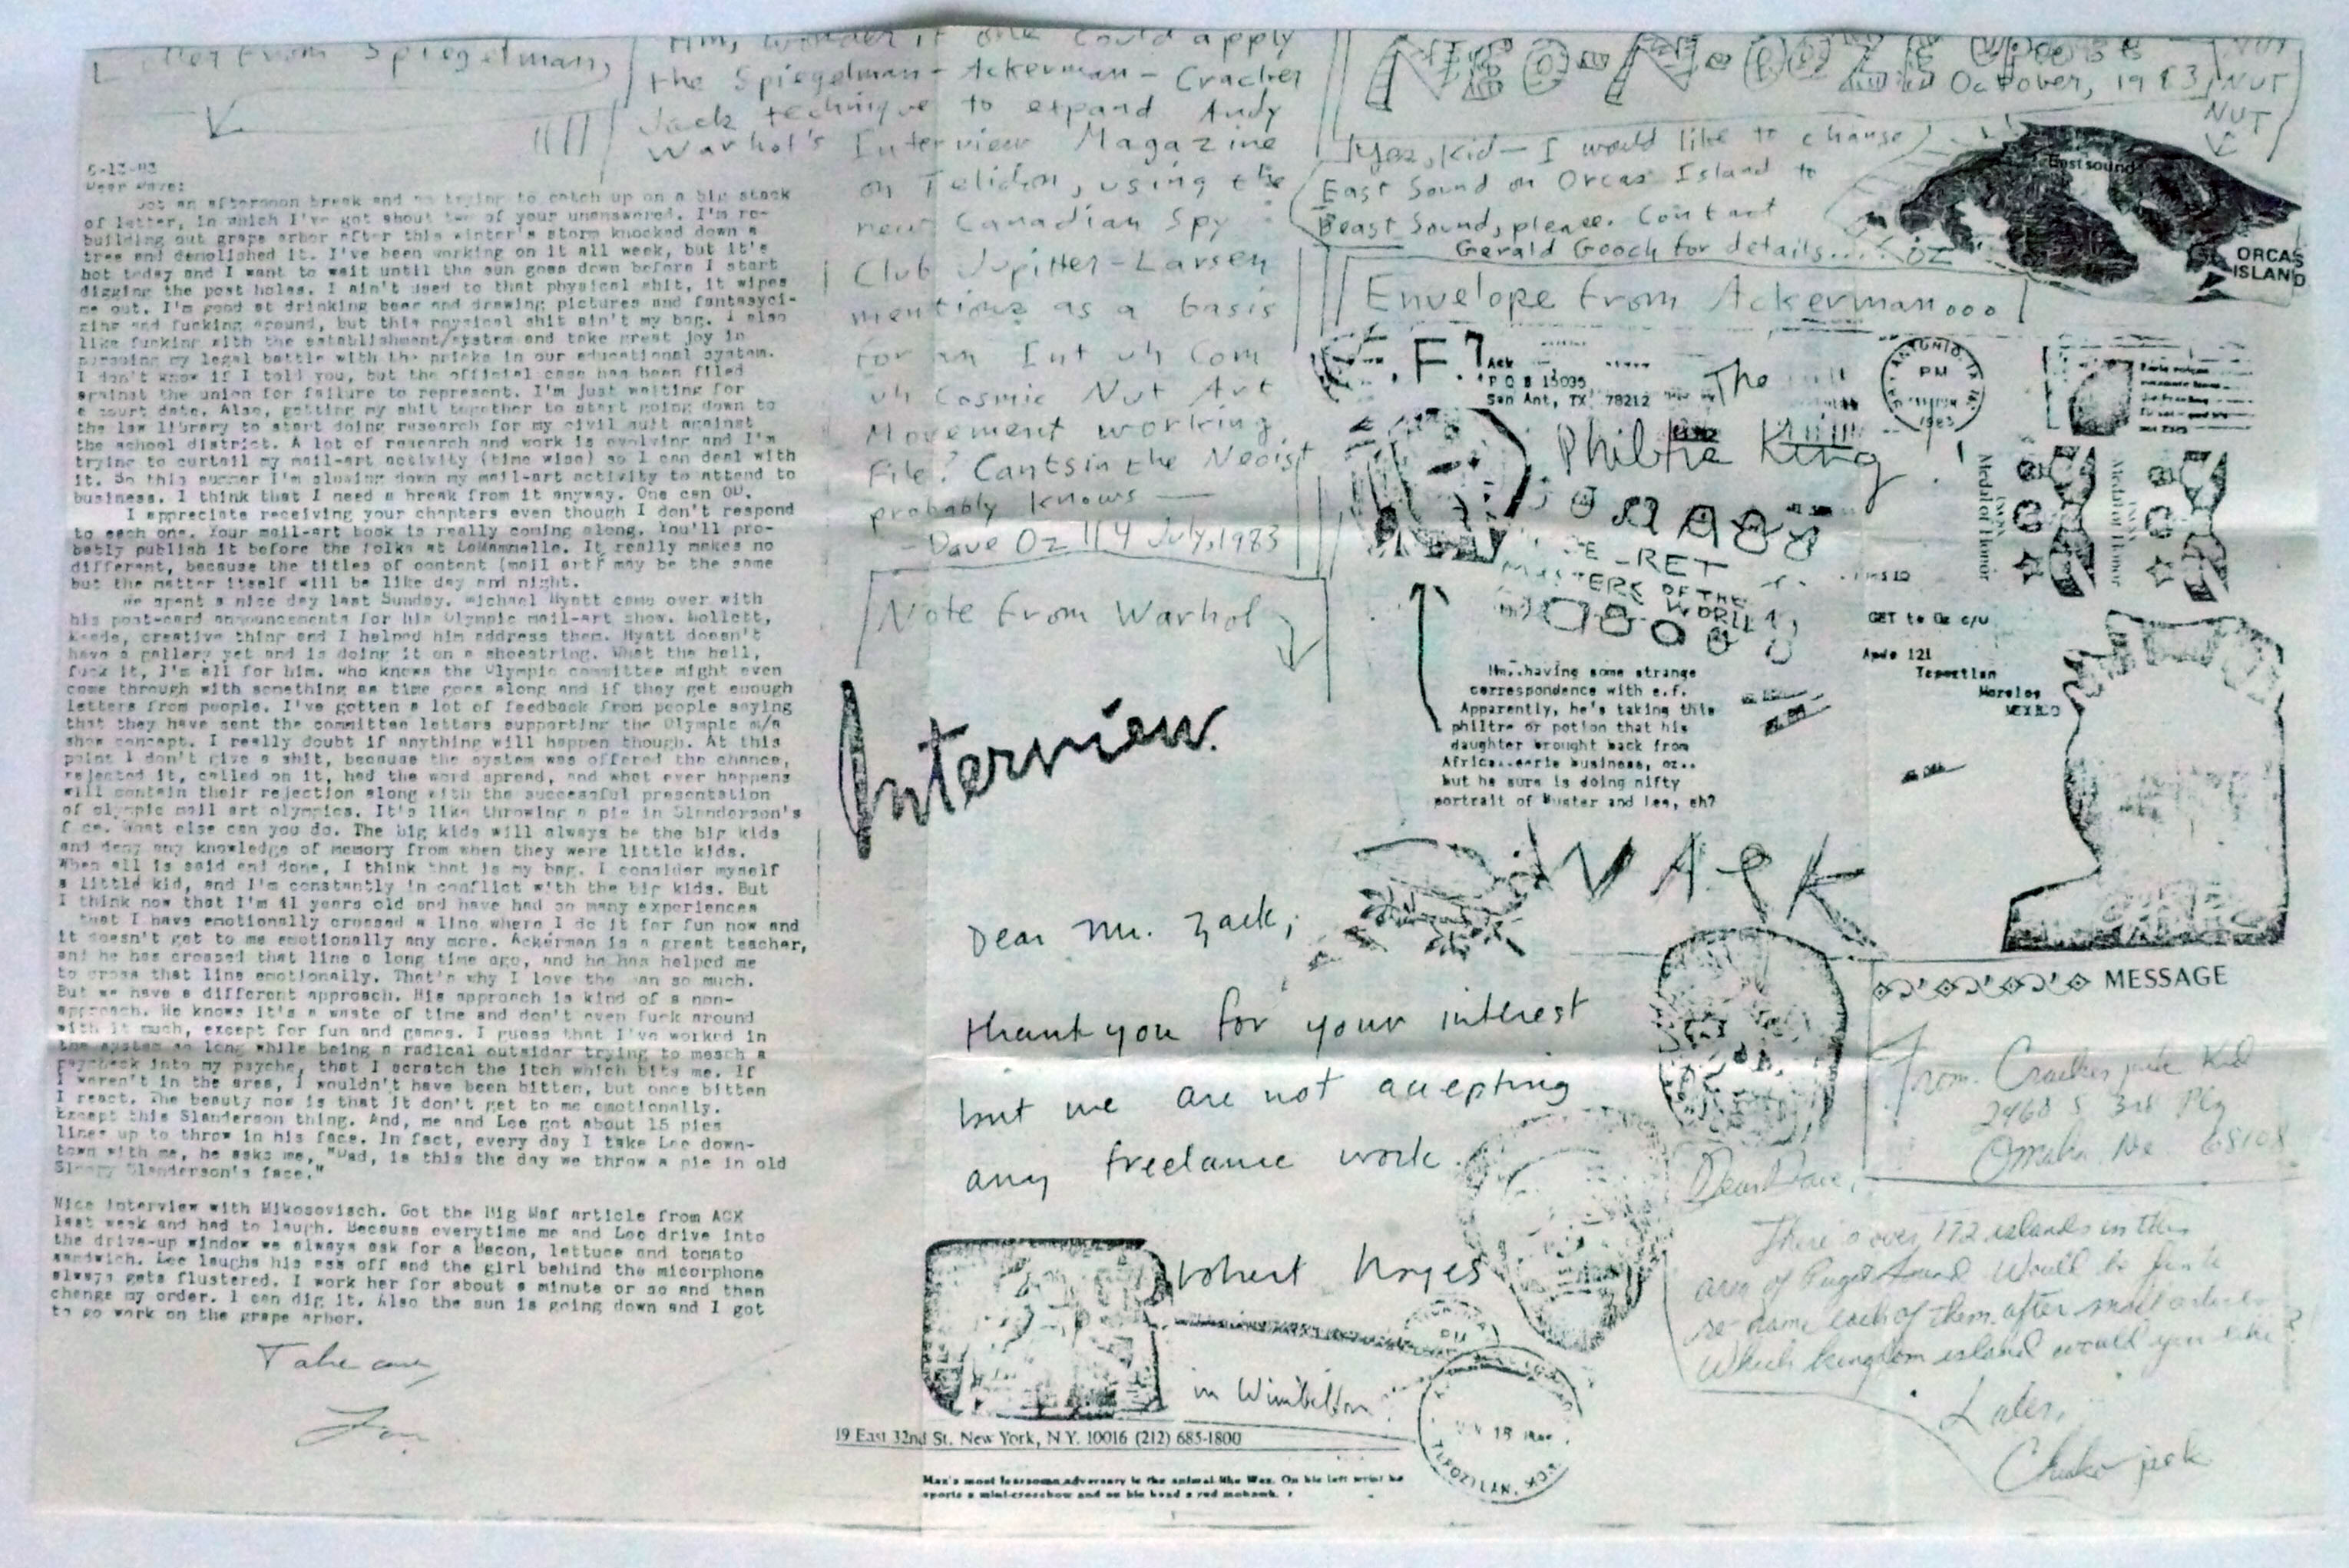 Letter From Spiegelman,
6-13-83
Dear Dave:
Got an afternoon break and am trying to catch up on a big stack
of letter, in which I've got about two of your unanswered. I'm re-
building out grape arbor after this winter's storm knocked down a
tree and demolished it. I've been working on it all week, but it's
hot today and I want to wait until the sun goes down before I start
digging the post holes. I ain't used to that physical shit, it wipes
me out. I'm good at drinking beer and drawing pictures and fantasyci-
zing and fucking around, but this physical shit ain't my bag. I also
like fucking with the establishment/system and take great joy in
pursuing my legal battle with the pricks in our educational system.
I don't know if I told you, but the official case has been filed
against the union for failure to represent. I'm just waiting for
a court date. Also, getting my shit together to start going down to
the law library to start doing research for my civil suit against
the school district. A lot of research and work is evolving and I'm
trying to curtail my mail-art activity (time wise) so I can deal with
it. So this summer I'm slowing down my mail-art activity to attend to
business. I think that I need a break from it anyway. One can OD.
I appreciate receiving your chapters even though I don't respond
to each one. Your mail-art book is really coming along. You'll pro-
bably publish it before the folks at LaMammelle. It really makes no
different, because the titles of content (mail art) may be the same
but the matter itself will be like day and night.
We spent a nice day last Sunday. Michael Hyatt came over with
his post-card announcements for his Olympic mail-art show. Mollett,
creative thing and I helped him address them. Hyatt doesn't
have a gallery yet and is doing it on a shoestring. What the hell,
fuck it, I'm all for him. Who knows the Olympic committee might even
come through with something as time goes along and if they get enough
letters from people. I've gotten a lot of feedback from people saying
that they have sent the committee letters supporting the Olympic m/a
show concept. I really doubt if anything will happen though. At this
point I don't give a shit, because the system was offered the chance,
rejected it, called on it, had the word spread, and what ever happens
will contain their rejection along with the successful presentation
of olympic mail art olympics. It's like throwing a pie in Slanderson's
face. What else can you do. The big kids will always be the big kids
and deny any knowledge of memory from when they were little kids.
When all is said and done, I think that is my bag. I consider myself
a little kid, and I'm constantly in conflict with the big kids. But
I think now that I'm 41 years old and have had so many experiences
that I have emotionally crossed a line where I do it for fun now and
it doesn't get to me emotionally any more. Ackerman is a great teacher,
and he has crossed that line a long time ago, and he has helped me
to cross that line emotionally. That's why I love the man so much.
But we have a different approach. His approach is kind of a non-
approach. He knows it's a waste of time and don't even fuck around
with it much, except for fun and games. I guess that I've worked in
the system so long while being a radical outsider trying to mesch a
paycheck into my psyche, that I scratch the itch which bits me. If
I weren't in the area, I wouldn't have been bitten, but once bitten
I react. The beauty now is that it don't get to me emotionally.
Except this Slanderson thing. And, me and Lee got about 15 pies
lines up to throw in his face. In fact, every day I take Lee down-
town with me, he asks me, "Dad, is this the day we throw a pie in old
Sleepy Slanderson's face."
Nice interview with Mikosovisch. Got the Big Maf article from ACK
last week and had to laugh. Because everytime me and Lee drive into
the drive-up window we always ask for a Bacon, lettuce and tomato
sandwich. Lee laughs his ass off and the girl behind the micorphone
always gets flustered. I work her for about a minute or so and then
change my order. I can dig it. Also the sun is going down and I got
to go work on the grape arbor.
Take care,
Lon
Hm, wonder if one could apply
the Spiegelman-Ackerman-Cracker
Jack technique to expand Andy
Warhol's Interview Magazine
on Telidon, using the
new Canadian Spy
Club Jupitter-Larsen
mentions as a basis
for an Int uh Com
uh Cosmic Nut Art
Movement working
File? Cantsin the Neoist
probably knows —
- Dave Oz 114 July, 1983
Note From Warhol
Interview.
Dear Mr. Zack,
thank you for your interest
but we are not accepting
any freelance work
Robert Hayes
in Wimbeldon
19 East 32nd St. New York, N.Y. 10016 (212) 685-1800
Max's most fearsome adversary is the animal-like Wez. On his left wrist he
sports a mini-crossbow and on his head a red mohawk.
October, 1983
NUT
NUT
NUT
Yes, Kid — I would like to change
East Sound on Orcas Island to
Beast Sound, please. Contact
Gerald Gooch for details.... OZ
East sound
ORCAS
ISLAND
Envelope from Ackerman...
E.F.?
Ack
P O B 15035
San Ant, TX 78212
The
Philtre King!
SAN ANTONIO, TX
PM
1983
Medal of Honor
Medal of Honor
MASTERS OF THE
WORLD
GET to Oz c/o
Apdo 121
Tepoztlan
Morelos
MEXICO
Hm..having some strange
correspondence with e.f.
Apparently, he's taking this
philtre or potion that his
daughter brought back from
Africa..eerie business, oz..
but he sure is doing nifty
portrait of Buster and Lee, eh?
MESSAGE
From: Crackerjack Kid
Omaha Ne 68108
Dear Dave,
There's over 172 islands in this
area of Puget Sound. Would be fun to
re-name each of them after mail artists
Which kingdom island would you like?
Later,